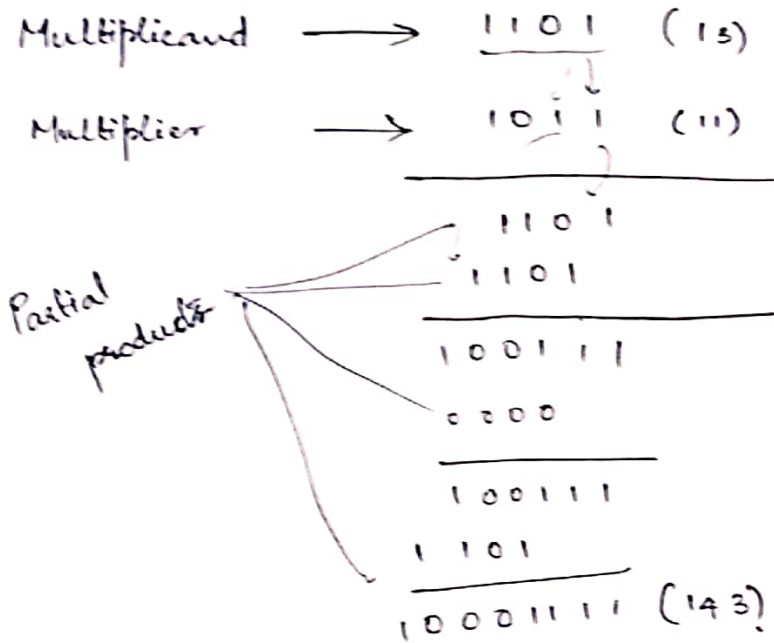 Multiplicand → 1101 (13)
Multiplier → 1011 (11)
1101
1101
Partial
products
100111
0000
100111
1101
10001111 (143)